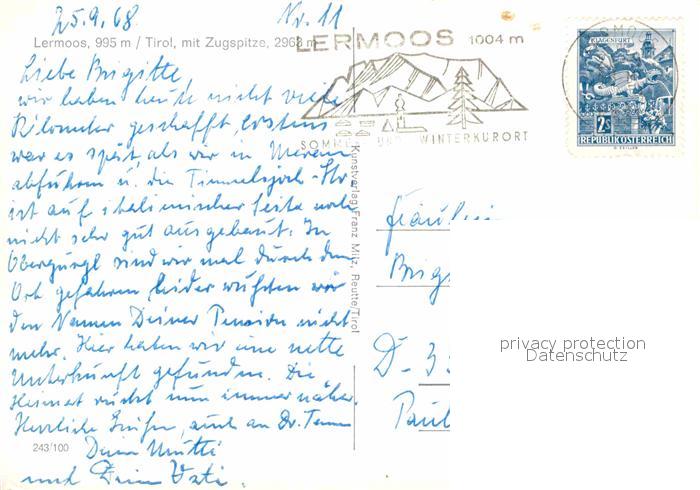 25.9.68 Nr. 11
Lermoos, 995 m / Tirol, mit Zugspitze, 2963 m
LERMOOS 1004 m
SOMMER UND WINTERKURORT
KLAGENFURT
2S
REPUBLIK ÖSTERREICH
Liebe Brigitte,
wir haben heute nicht viele
Kilometer geschafft, erstens
war es spät als wir in Meran
abfuhren u. die Timmelsjoch-Str.
ist auf italienischer Seite noch
nicht sehr gut ausgebaut. In
Obergurgl sind wir mal durch den
Ort gefahren leider wußten wir
den Namen Deiner Pension nicht
mehr. Hier haben wir eine nette
Unterkunft gefunden. Die
Heimat rückt nun immer näher.
Herzliche Grüße, auch an Dr.
Deine Mutti
und Dein Vati.
243/100
Kunstverlag Franz Milz, Reutte/Tirol
Fräulein
Brig
D-3
Paul
privacy protection
Datenschutz